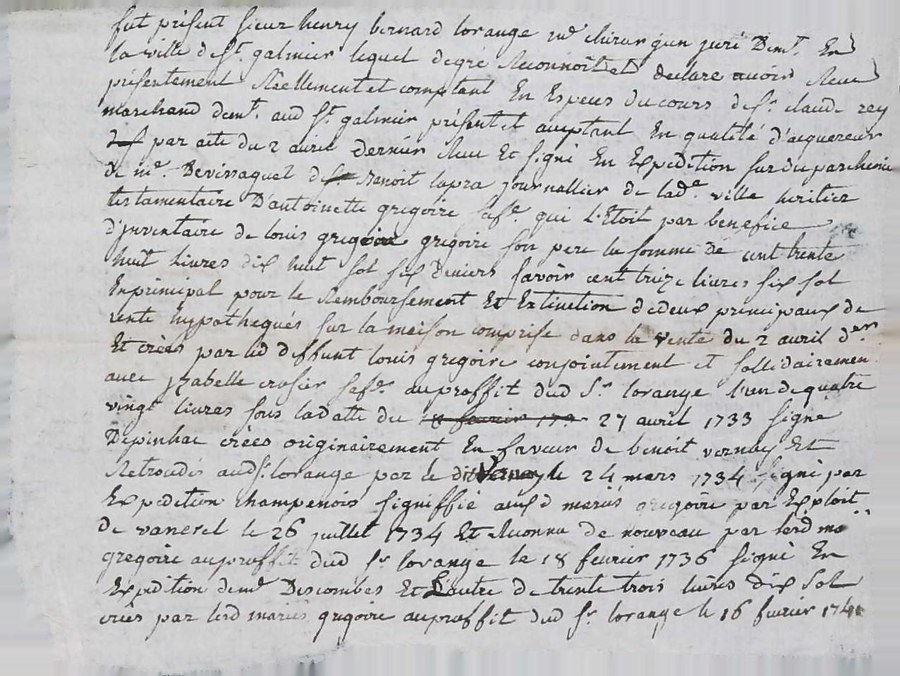 fut présent sieur henry bernard lorange me chirurgien juré Demt. En
la ville de st. galmier lequel degré Reconnoit et declare avoir Receu
présentement Réellement et comptant En Especes du cours de sr. claude rey
marchand demt. aud st. galmier présent et acceptant En qualité d'acquereur
par acte du 2 avril dernier Receu Et signé En Expedition sur du parchemin
de me. Bevissaguet de Benoit lapra journallier de lade. ville heritier
testamentaire D'antoinette gregoire safe. qui L'Etoit par benefice
d'inventaire de louis gregoire son pere la somme de cent trente
huit livres dix huit sol six deniers savoir cent treize livres six sol
En principal pour le Remboursement Et Extinction de deux principaux de
rente hypothequés sur la maison comprise dans la vente du 2 avril der.
Et créés par led deffunt louis gregoire conjointement et sollidairement
avec yzabelle crosier safe. au proffit dud sr. lorange l'un de quatre
vingt livres sous la datte du 18 fevrier 173 27 avril 1733 signe
Depinhac créés originairement En faveur de benoit vernay Et
Retrocédés aud sr. lorange par le dit vernay le 24 mars 1734 signé par
Expedition champenois signiffié aux d mariés gregoire par Exploit
de vanerel le 26 juillet 1734 Et Reconnu de nouveau par lesd ma
gregoire au proffit dud sr. lorange le 18 fevrier 1736 signé En
Expedition de me Descombes Et L'autre de trente trois livres dix sol
créés par lesd mariés gregoire au proffit dud sr. lorange le 16 fevrier 174